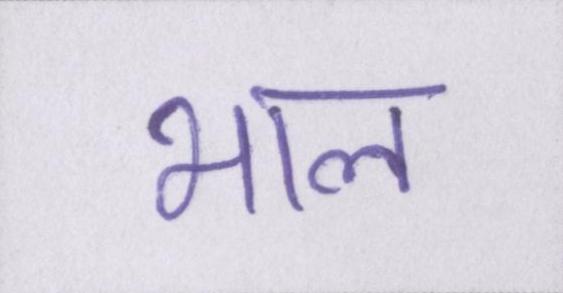 भाल